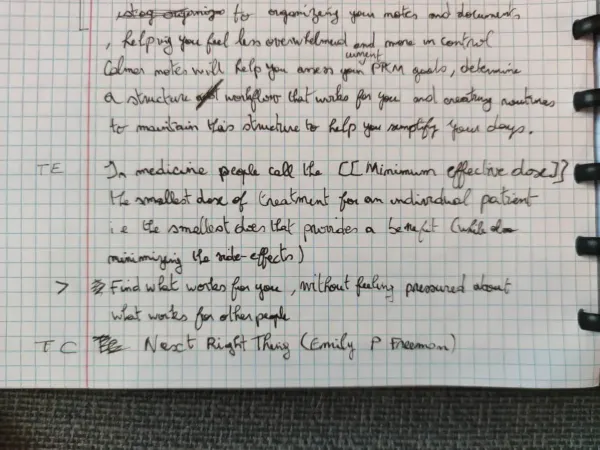 for organizing your notes and documents
, helping you feel less overwhelmed and more in control
current
Calmer notes will help you assess your PKM goals, determine
a structure workflow that works for you and creating routines
to maintain this structure to help you simplify your days.
TE In medicine people call the [[Minimum effective dose]]
the smallest dose of treatment for an individual patient
i.e the smallest does that provides a benefit (while
minimizing the side-effects)
> Find what works for you, without feeling pressured about
what works for other people
TC Next Right Thing (Emily P Freeman)